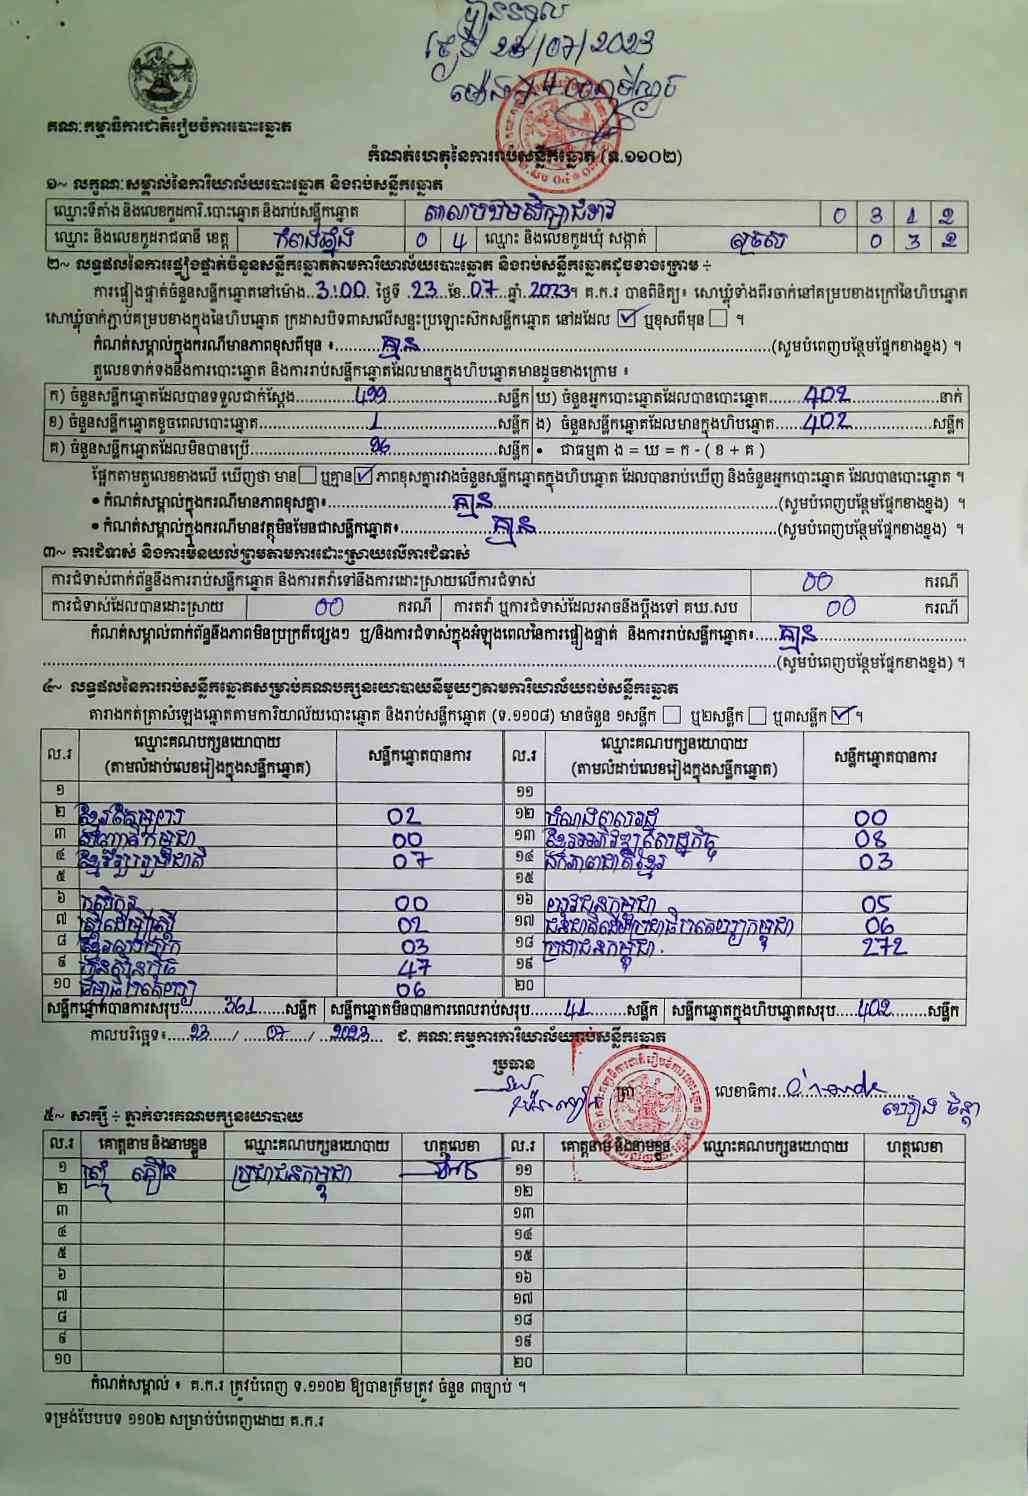 ថ្ងៃទី 23/07/2023
គណៈកម្មាធិការជាតិរៀបចំការបោះឆ្នោត
កំណត់ហេតុនៃការរាប់សន្លឹកឆ្នោត (ទ.១១០២)
១~ លក្ខណៈសម្គាល់នៃការិយាល័យបោះឆ្នោត និងរាប់សន្លឹកឆ្នោត
ឈ្មោះទីតាំង និងលេខកូដការិ.បោះឆ្នោត និងរាប់សន្លឹកឆ្នោត 0 3 1 2
ឈ្មោះ និងលេខកូដរាជធានី ខេត្ត កំពង់ឆ្នាំង 0 4 ឈ្មោះ និងលេខកូដឃុំ សង្កាត់ 0 3 2
២~ លទ្ធផលនៃការផ្ទៀងផ្ទាត់ចំនួនសន្លឹកឆ្នោតតាមការិយាល័យបោះឆ្នោត និងរាប់សន្លឹកឆ្នោតដូចខាងក្រោម ÷
ការផ្ទៀងផ្ទាត់ចំនួនសន្លឹកឆ្នោតនៅម៉ោង 3:00 ថ្ងៃទី 23 ខែ 07 ឆ្នាំ 2023។ គ.ក.រ បានពិនិត្យ៖ សោឃ្លុំទាំងពីរចាក់នៅគម្របខាងក្រៅនៃហិបឆ្នោត
សោឃ្លុំចាក់ភ្ជាប់គម្របខាងក្នុងនៃហិបឆ្នោត ក្រដាសបិទពាសលើសន្ទះប្រឡោះស៊កសន្លឹកឆ្នោត នៅដដែល ☑ ឬខុសពីមុន ☐ ។
កំណត់សម្គាល់ក្នុងករណីមានភាពខុសពីមុន ៖ គ្មាន (សូមបំពេញបន្ថែមផ្នែកខាងខ្នង) ។
តួលេខទាក់ទងនឹងការបោះឆ្នោត និងការរាប់សន្លឹកឆ្នោតដែលមានក្នុងហិបឆ្នោតមានដូចខាងក្រោម ៖
ក) ចំនួនសន្លឹកឆ្នោតដែលបានទទួលជាក់ស្តែង 499 សន្លឹក ឃ) ចំនួនអ្នកបោះឆ្នោតដែលបានបោះឆ្នោត 402 នាក់
ខ) ចំនួនសន្លឹកឆ្នោតខូចពេលបោះឆ្នោត 1 សន្លឹក ង) ចំនួនសន្លឹកឆ្នោតដែលមានក្នុងហិបឆ្នោត 402 សន្លឹក
គ) ចំនួនសន្លឹកឆ្នោតដែលមិនបានប្រើ 96 សន្លឹក • ជាធម្មតា ង = ឃ = ក - ( ខ + គ )
ផ្អែកតាមតួលេខខាងលើ ឃើញថា មាន ☐ ឬគ្មាន ☑ ភាពខុសគ្នារវាងចំនួនសន្លឹកឆ្នោតក្នុងហិបឆ្នោត ដែលបានរាប់ឃើញ និងចំនួនអ្នកបោះឆ្នោត ដែលបានបោះឆ្នោត ។
• កំណត់សម្គាល់ក្នុងករណីមានភាពខុសគ្នា៖ គ្មាន (សូមបំពេញបន្ថែមផ្នែកខាងខ្នង) ។
• កំណត់សម្គាល់ក្នុងករណីមានវត្ថុមិនមែនជាសន្លឹកឆ្នោត៖ គ្មាន (សូមបំពេញបន្ថែមផ្នែកខាងខ្នង) ។
៣~ ការជំទាស់ និងការមិនយល់ព្រមតាមការដោះស្រាយលើការជំទាស់
ការជំទាស់ពាក់ព័ន្ធនឹងការរាប់សន្លឹកឆ្នោត និងការតវ៉ាទៅនឹងការដោះស្រាយលើការជំទាស់ 00 ករណី
ការជំទាស់ដែលបានដោះស្រាយ 00 ករណី ការតវ៉ា ឬការជំទាស់ដែលអាចនឹងប្តឹងទៅ គឃ.សប 00 ករណី
កំណត់សម្គាល់ពាក់ព័ន្ធនឹងភាពមិនប្រក្រតីផ្សេងៗ ឬ/និងការជំទាស់ក្នុងអំឡុងពេលនៃការផ្ទៀងផ្ទាត់ និងការរាប់សន្លឹកឆ្នោត៖ គ្មាន
(សូមបំពេញបន្ថែមផ្នែកខាងខ្នង) ។
៤~ លទ្ធផលនៃការរាប់សន្លឹកឆ្នោតសម្រាប់គណបក្សនយោបាយនីមួយៗតាមការិយាល័យរាប់សន្លឹកឆ្នោត
តារាងកត់ត្រាសំឡេងឆ្នោតតាមការិយាល័យបោះឆ្នោត និងរាប់សន្លឹកឆ្នោត (ទ.១១០៨) មានចំនួន ១សន្លឹក ☐ ឬ២សន្លឹក ☐ ឬ៣សន្លឹក ☑ ។
ល.រ ឈ្មោះគណបក្សនយោបាយ (តាមលំដាប់លេខរៀងក្នុងសន្លឹកឆ្នោត) សន្លឹកឆ្នោតបានការ ល.រ ឈ្មោះគណបក្សនយោបាយ (តាមលំដាប់លេខរៀងក្នុងសន្លឹកឆ្នោត) សន្លឹកឆ្នោតបានការ
១ ១១
២ 02 ១២ 00
៣ 00 ១៣ ខ្មែរអភិវឌ្ឍន៍សេដ្ឋកិច្ច 08
៤ ខ្មែររួបរួមជាតិ 07 ១៤ ឯកភាពជាតិខ្មែរ 03
៥ ១៥
៦ កសិករ 00 ១៦ យុវជនកម្ពុជា 05
៧ ស្ត្រីដើម្បីស្ត្រី 02 ១៧ ជនជាតិដើមប្រជាធិបតេយ្យកម្ពុជា 06
៨ 03 ១៨ ប្រជាជនកម្ពុជា 272
៩ ហ៊្វុនស៊ិនប៉ិច 47 ១៩
១០ 06 ២០
សន្លឹកឆ្នោតបានការសរុប 361 សន្លឹក សន្លឹកឆ្នោតមិនបានការពេលរាប់សរុប 41 សន្លឹក សន្លឹកឆ្នោតក្នុងហិបឆ្នោតសរុប 402 សន្លឹក
កាលបរិច្ឆេទ៖ 23 / 07 / 2023 ជ. គណៈកម្មការការិយាល័យរាប់សន្លឹកឆ្នោត
ប្រធាន
ត្រា លេខាធិការ
៥~ សាក្សី ÷ ភ្នាក់ងារគណបក្សនយោបាយ
ល.រ គោត្តនាម និងនាមខ្លួន ឈ្មោះគណបក្សនយោបាយ ហត្ថលេខា ល.រ គោត្តនាម និងនាមខ្លួន ឈ្មោះគណបក្សនយោបាយ ហត្ថលេខា
១ ប្រជាជនកម្ពុជា ១១
២ ១២
៣ ១៣
៤ ១៤
៥ ១៥
៦ ១៦
៧ ១៧
៨ ១៨
៩ ១៩
១០ ២០
កំណត់សម្គាល់ ៖ គ.ក.រ ត្រូវបំពេញ ទ.១១០២ ឱ្យបានត្រឹមត្រូវ ចំនួន ៣ច្បាប់ ។
ទម្រង់បែបបទ ១១០២ សម្រាប់បំពេញដោយ គ.ក.រ